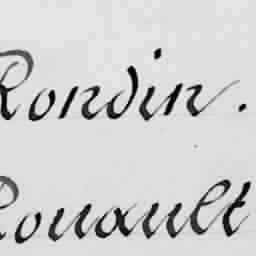 Rondin.
Rouault